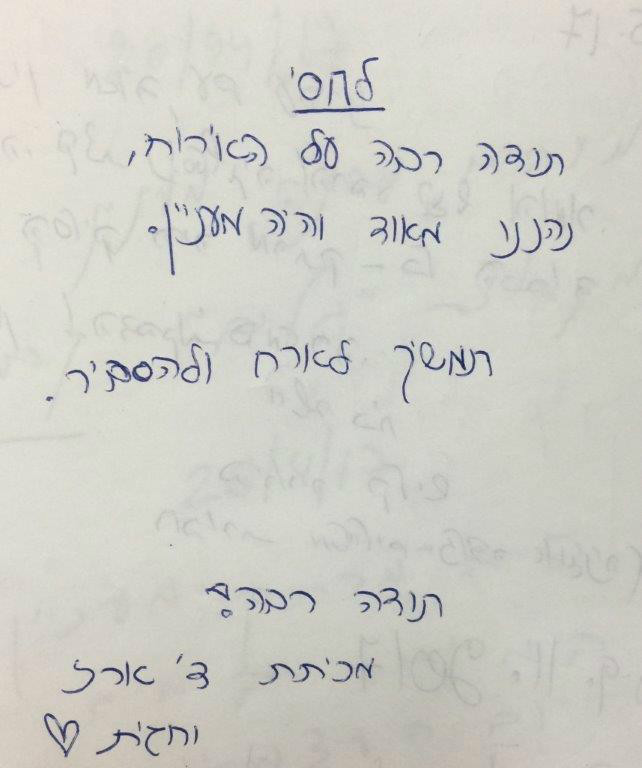 לחסי
תודה רבה על האירוח,
נהננו מאוד והיה מעניין.
תמשיך לארח ולהסביר.
תודה רבה!
מכיתת ד' ארז
וחגית ♡